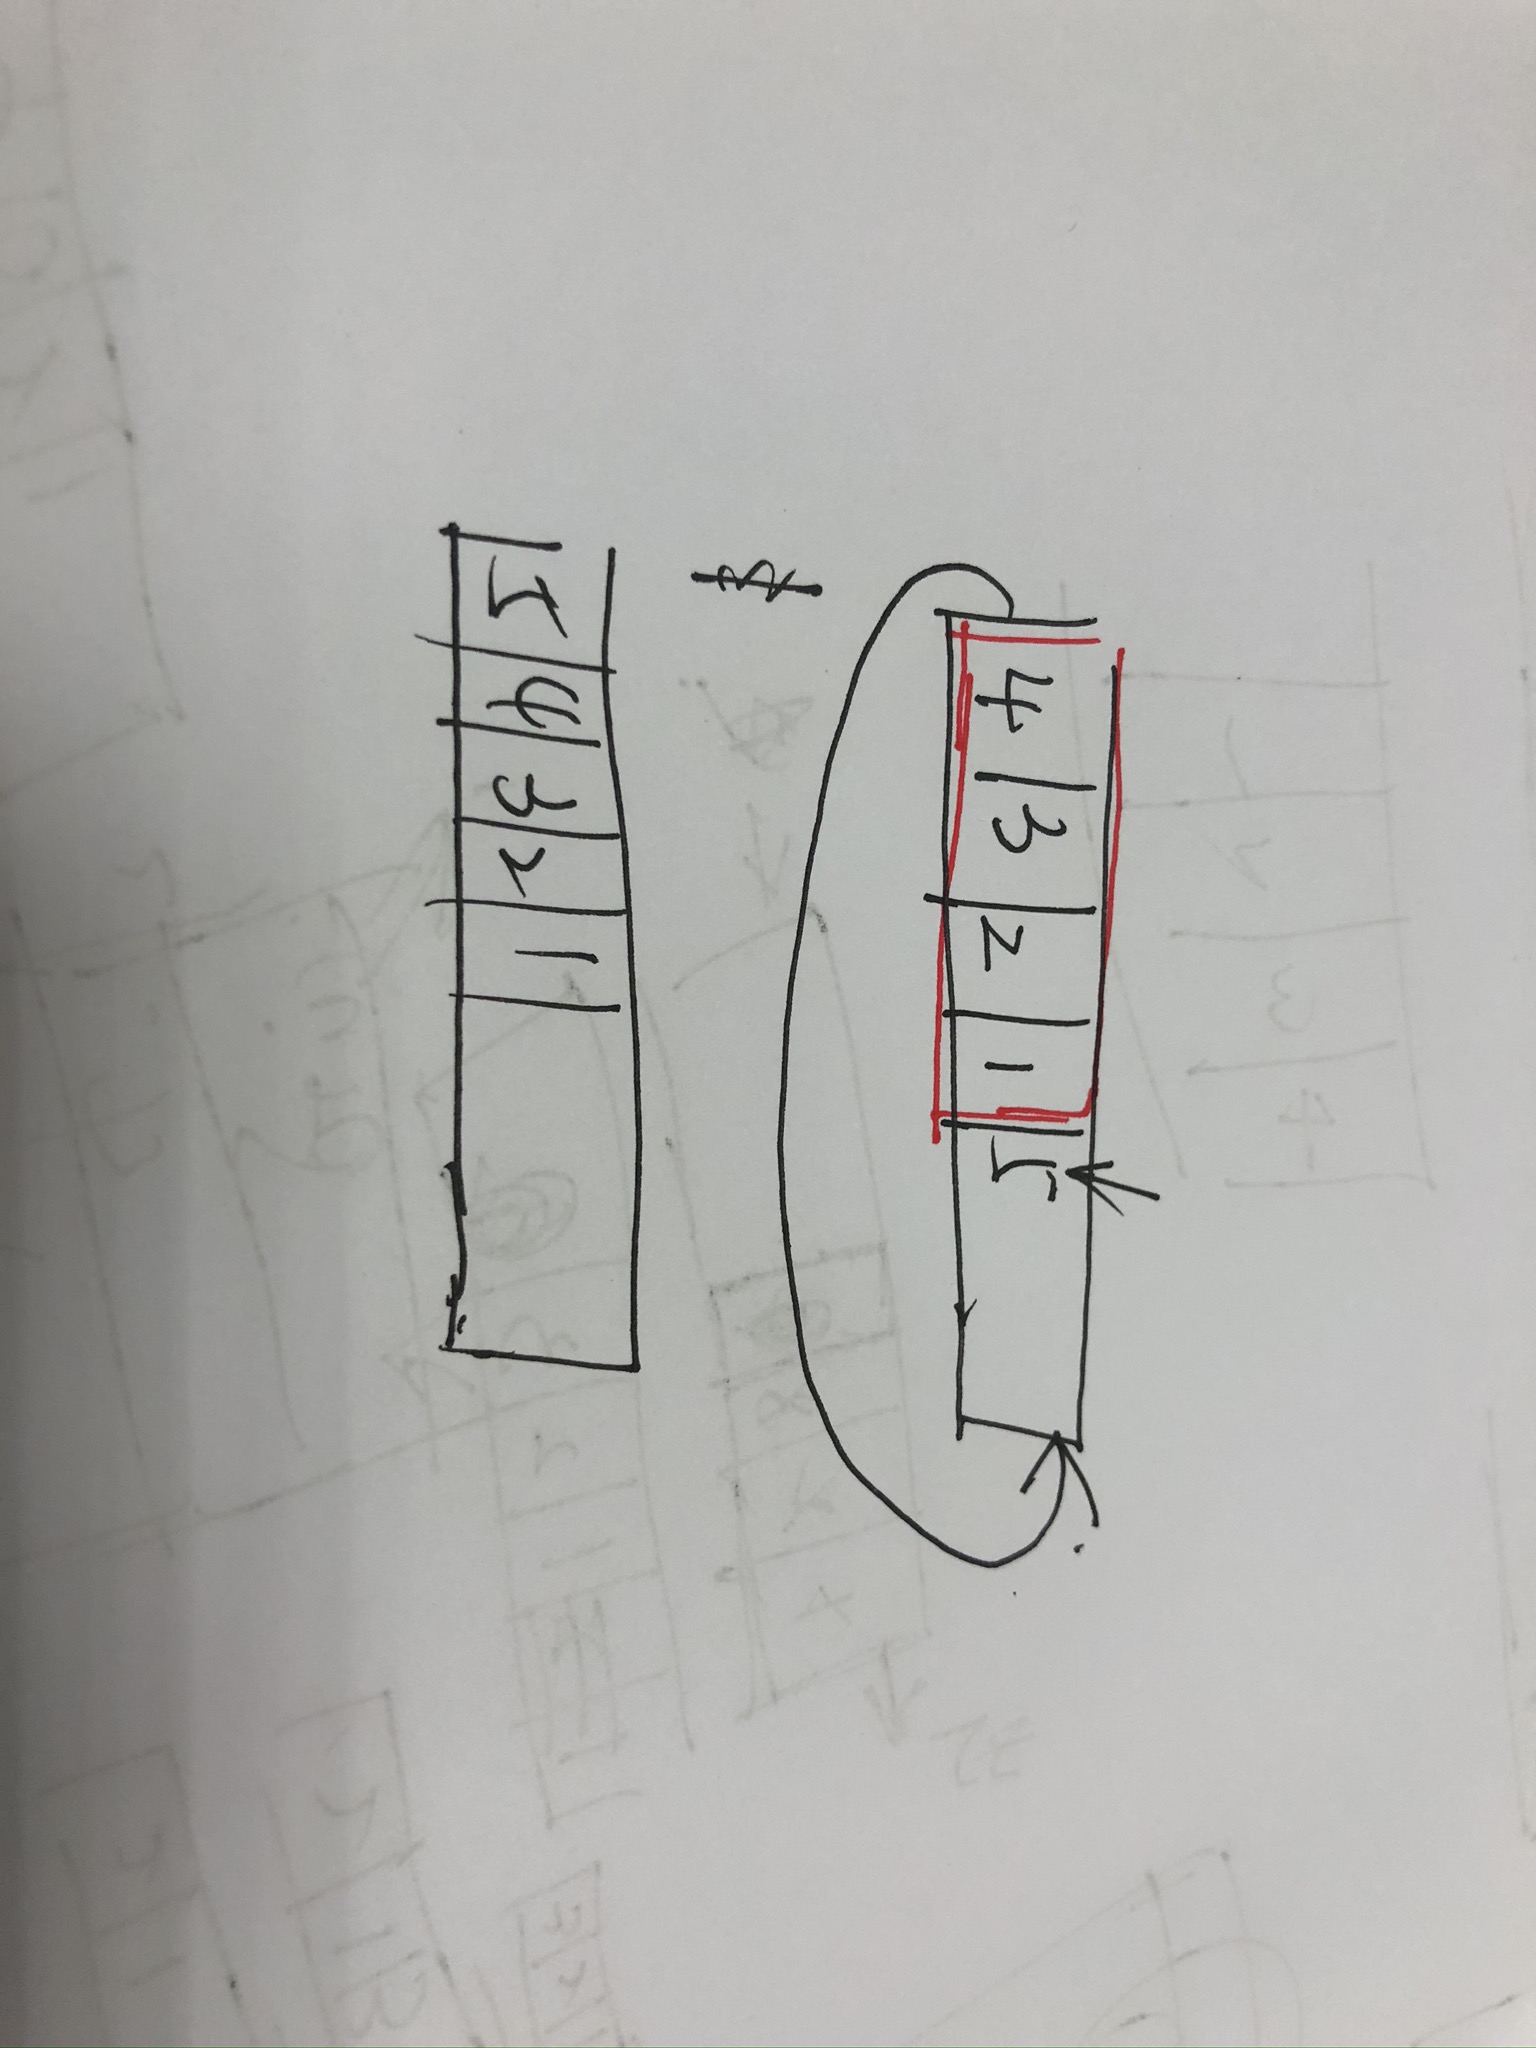 4 3 2 1 5
5 4 3 2 1